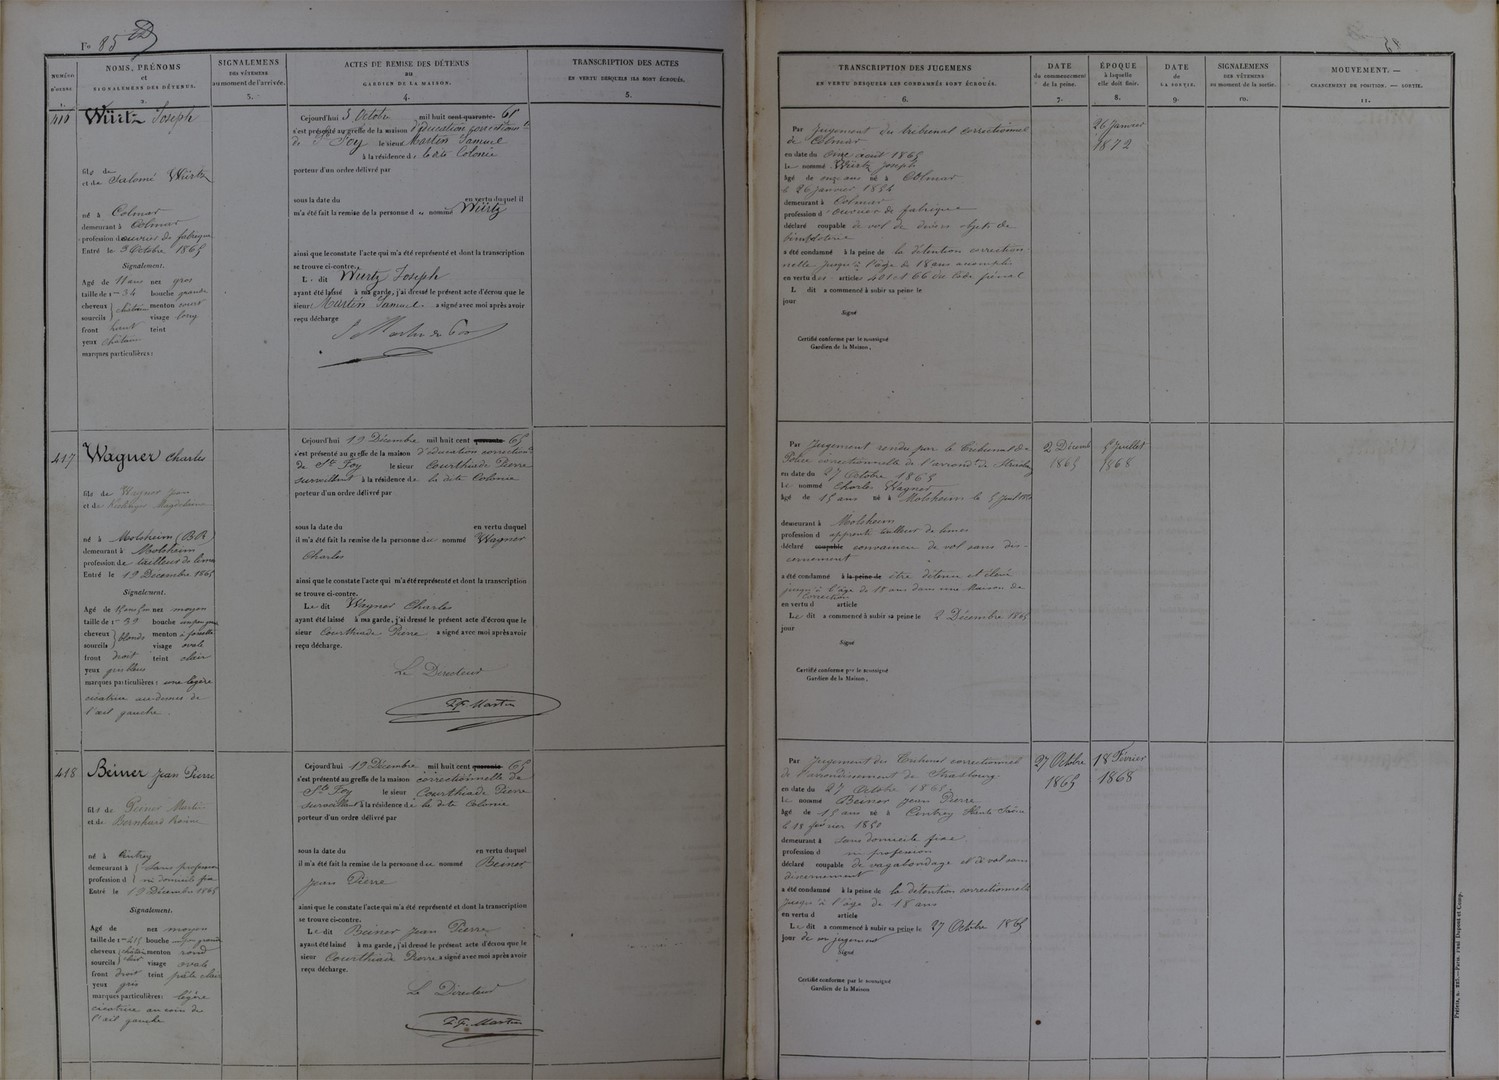 Fo 85
NUMÉRO D'ORDRE 1.
NOMS, PRÉNOMS et SIGNALEMENS DES DÉTENUS. 2.
SIGNALEMENS DES VÊTEMENS au moment de l'arrivée. 3.
ACTES DE REMISE DES DÉTENUS au GARDIEN DE LA MAISON. 4.
TRANSCRIPTION DES ACTES EN VERTU DESQUELS ILS SONT ÉCROUÉS. 5.
TRANSCRIPTION DES JUGEMENS EN VERTU DESQUELS LES CONDAMNÉS SONT ÉCROUÉS. 6.
DATE du commencement de la peine. 7.
ÉPOQUE à laquelle elle doit finir. 8.
DATE de LA SORTIE. 9.
SIGNALEMENS DES VÊTEMENS au moment de la sortie. 10.
MOUVEMENT. — CHANGEMENT DE POSITION. — SORTIE. 11.
416
Würtz Joseph
fils de
et de Salomé Würtz
né à Colmar
demeurant à Colmar
profession d'ouvrier de fabrique
Entré le 3 Octobre 1865
Signalement.
Agé de 11 ans nez gros
taille de 1m 34 bouche grande
cheveux châtain menton court
sourcils visage long
front haut teint
yeux châtain
marques particulières:
Cejourd'hui 3 Octobre mil huit cent quarante- 65
s'est présenté au greffe de la maison d'éducation correctionnelle
de Ste Foy le sieur Martin Samuel
à la résidence de la dite Colonie
porteur d'un ordre délivré par
sous la date du en vertu duquel il
m'a été fait la remise de la personne du nommé Würtz
ainsi que le constate l'acte qui m'a été représenté et dont la transcription
se trouve ci-contre.
L dit Würtz Joseph
ayant été laissé à ma garde, j'ai dressé le présent acte d'écrou que le
sieur Martin Samuel a signé avec moi après avoir
reçu décharge
Par Jugement du tribunal correctionnel
de Colmar
en date du onze août 1865
le nommé Würtz Joseph
âgé de onze ans né à Colmar
le 26 janvier 1854
demeurant à Colmar
profession d'ouvrier de fabrique
déclaré coupable de vol de divers objets de
a été condamné à la peine de la détention correction
nelle jusqu'à l'âge de 18 ans accomplis
en vertu des articles 401 et 66 du Code pénal
L dit a commencé à subir sa peine le
jour
Signé
Certifié conforme par le soussigné
Gardien de la Maison.
26 Janvier
1872
417
Wagner Charles
fils de Wagner Jean
et de Magdeleine
né à Molsheim (BR)
demeurant à Molsheim
profession de tailleur de limes
Entré le 19 Décembre 1865
Signalement.
Agé de nez moyen
taille de 1m 39 bouche
cheveux blonds menton à fossette
sourcils visage ovale
front droit teint clair
yeux gris bleus
marques particulières: une légère
cicatrice au-dessus de
l'œil gauche.
Cejourd'hui 19 Décembre mil huit cent quarante 65
s'est présenté au greffe de la maison d'éducation correctionnelle
de Ste Foy le sieur Courthiade Pierre
surveillant à la résidence de la dite Colonie
porteur d'un ordre délivré par
sous la date du en vertu duquel
il m'a été fait la remise de la personne du nommé Wagner
Charles
ainsi que le constate l'acte qui m'a été représenté et dont la transcription
se trouve ci-contre.
Le dit Wagner Charles
ayant été laissé à ma garde, j'ai dressé le présent acte d'écrou que le
sieur Courthiade Pierre a signé avec moi après avoir
reçu décharge.
Le Directeur
Martin
Par Jugement rendu par le Tribunal de
Police correctionnelle de l'arrondt de Strasbg
en date du 27 Octobre 1865
le nommé Charles Wagner
âgé de 15 ans né à Molsheim le 5 Juil 1850
demeurant à Molsheim
profession d'apprenti tailleur de limes
déclaré coupable convaincu de vol sans dis-
cernement
a été condamné à la peine de être détenu et élevé
jusqu'à l'âge de 18 ans dans une Maison de
Correction
en vertu d article
Le dit a commencé à subir sa peine le 2 Décembre 1865
jour
Signé
Certifié conforme par le soussigné
Gardien de la Maison.
2 Décemb
1865
5 Juillet
1868
418
Beiner Jean Pierre
fils de Beiner Martin
et de Bernhard
né à Cintrey
demeurant à sans profession
profession d ni domicile fixe
Entré le 19 Décembre 1865
Signalement.
Agé de nez moyen
taille de 1m 415 bouche un peu grande
cheveux châtain menton rond
sourcils clair visage ovale
front droit teint pâle clair
yeux gris
marques particulières: légère
cicatrice au coin de
l'œil gauche
Cejourd'hui 19 Décembre mil huit cent quarante 65
s'est présenté au greffe de la maison correctionnelle de
Ste Foy le sieur Courthiade Pierre
surveillant à la résidence de la dite Colonie
porteur d'un ordre délivré par
sous la date du en vertu duquel
il m'a été fait la remise de la personne du nommé Beiner
Jean Pierre
ainsi que le constate l'acte qui m'a été représenté et dont la transcription
se trouve ci-contre.
Le dit Beiner Jean Pierre
ayant été laissé à ma garde, j'ai dressé le présent acte d'écrou que le
sieur Courthiade Pierre a signé avec moi après avoir
reçu décharge.
Le Directeur
Martin
Par Jugement du Tribunal correctionnel
de l'arrondissement de Strasbourg
en date du 27 Octobre 1865
le nommé Beiner Jean Pierre
âgé de 15 ans né à Cintrey Haute Saône
le 18 février 1850
demeurant à sans domicile fixe
profession d ni profession
déclaré coupable de vagabondage et de vol sans
discernement
a été condamné à la peine de la détention correctionnelle
jusqu'à l'âge de 18 ans
en vertu d article
Le dit a commencé à subir sa peine le 27 Octobre 1865
jour de son jugement
Signé
Certifié conforme par le soussigné
Gardien de la Maison
27 Octobre
1865
18 Février
1868